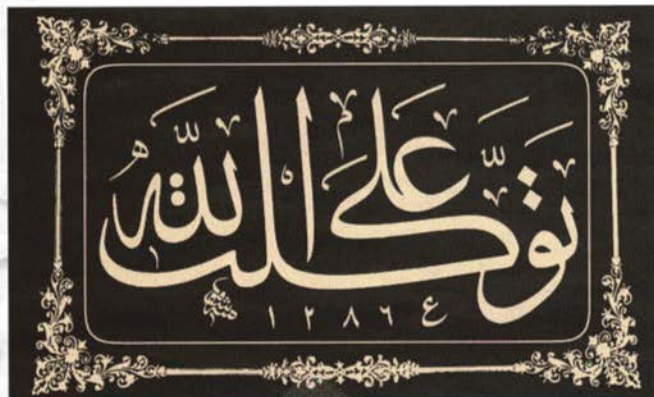 توكلت على الله
١٢٨٦ ع